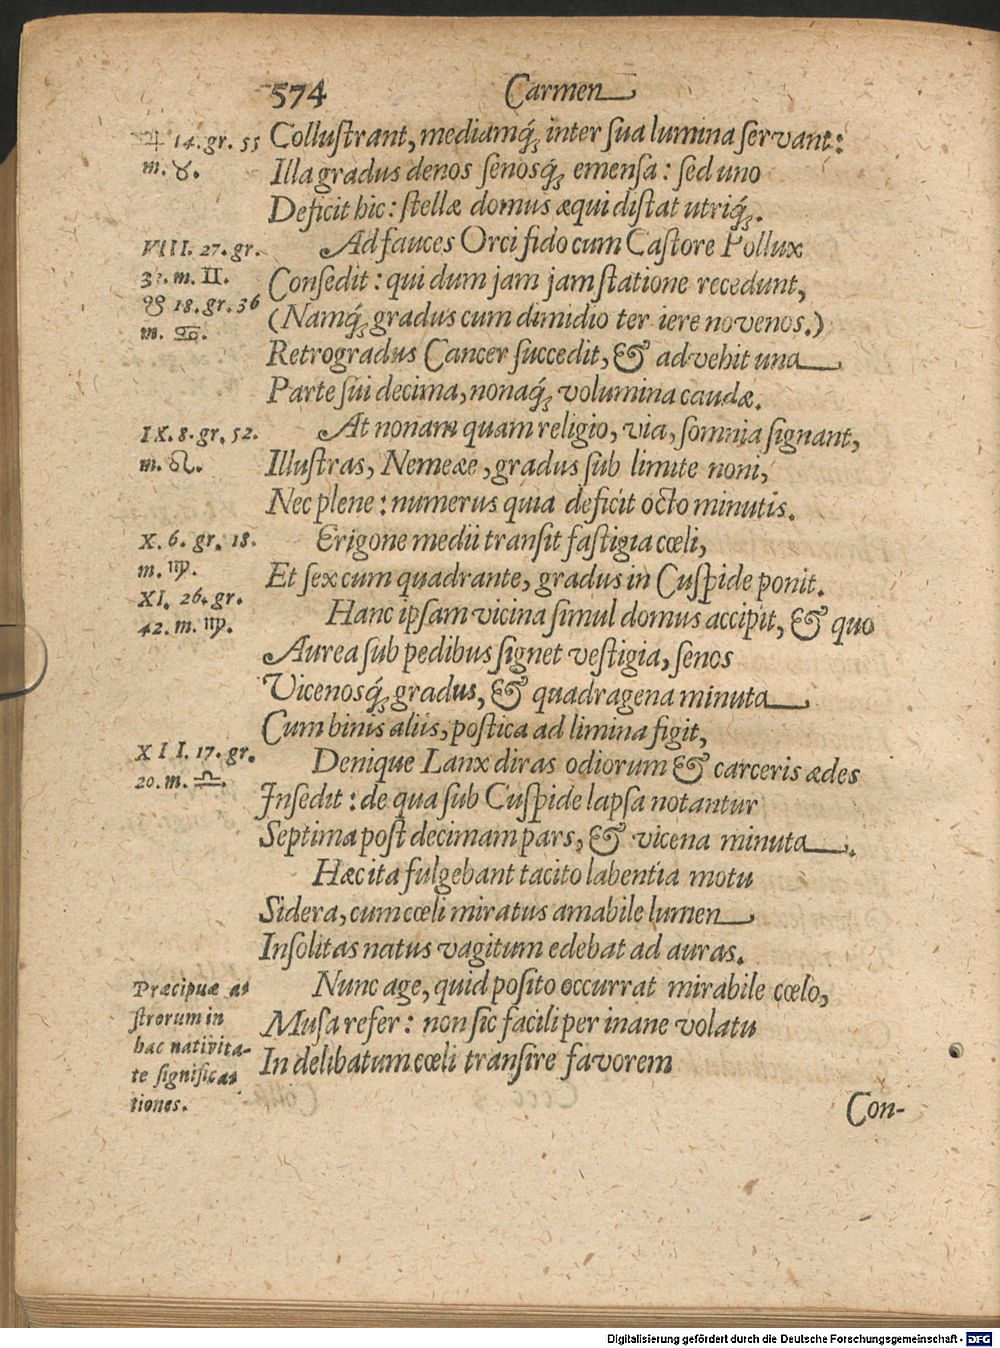 574 Carmen
♃ 14. gr. 55
m. ♉.
Colluſtrant, mediamq́; inter ſua lumina ſervant:
Illa gradus denos ſenosq́; emenſa: ſed uno
Deficit hic: ſtellæ domus æqui diſtat utriq́;.
VIII. 27. gr.
m. II.
☋ 18. gr. 36
m. ♋.
Ad fauces Orci fido cum Caſtore Pollux
Conſedit: qui dum jam jam ſtatione recedunt,
(Namq́; gradus cum dimidio ter iere novenos.)
Retrogradus Cancer ſuccedit, & advehit una
Parte ſui decima, nonaq́; volumina caudæ.
IX. 8. gr. 52.
m. ♌.
At nonam quam religio, via, ſomnia ſignant,
Illuſtras, Nemeæe, gradus ſub limite noni,
Nec plene: numerus quia deficit octo minutis.
X. 6. gr. 18.
m. ♍.
Erigone medii tranſit faſtigia cœli,
Et ſex cum quadrante, gradus in Cuſpide ponit.
XI. 26. gr.
42. m. ♍.
Hanc ipſam vicina ſimul domus accipit, & quo
Aurea ſub pedibus ſignet veſtigia, ſenos
Vicenosq́; gradus, & quadragena minuta
Cum binis aliis, poſtica ad limina figit,
XII. 17. gr.
20. m. ♎.
Denique Lanx diras odiorum & carceris ædes
Inſedit: de qua ſub Cuſpide lapſa notantur
Septima poſt decimam pars, & vicena minuta.
Hæc ita fulgebant tacito labentia motu
Sidera, cum cœli miratus amabile lumen
Inſolitas natus vagitum edebat ad auras.
Præcipuæ as
ſtrorum in
hac nativita-
te ſignificas
tiones.
Nunc age, quid poſito occurrat mirabile cœlo,
Muſa refer: non ſic facili per inane volatu
In delibatum cœli tranſire favorem
Con-
Digitalisierung gefördert durch die Deutsche Forschungsgemeinschaft - DFG